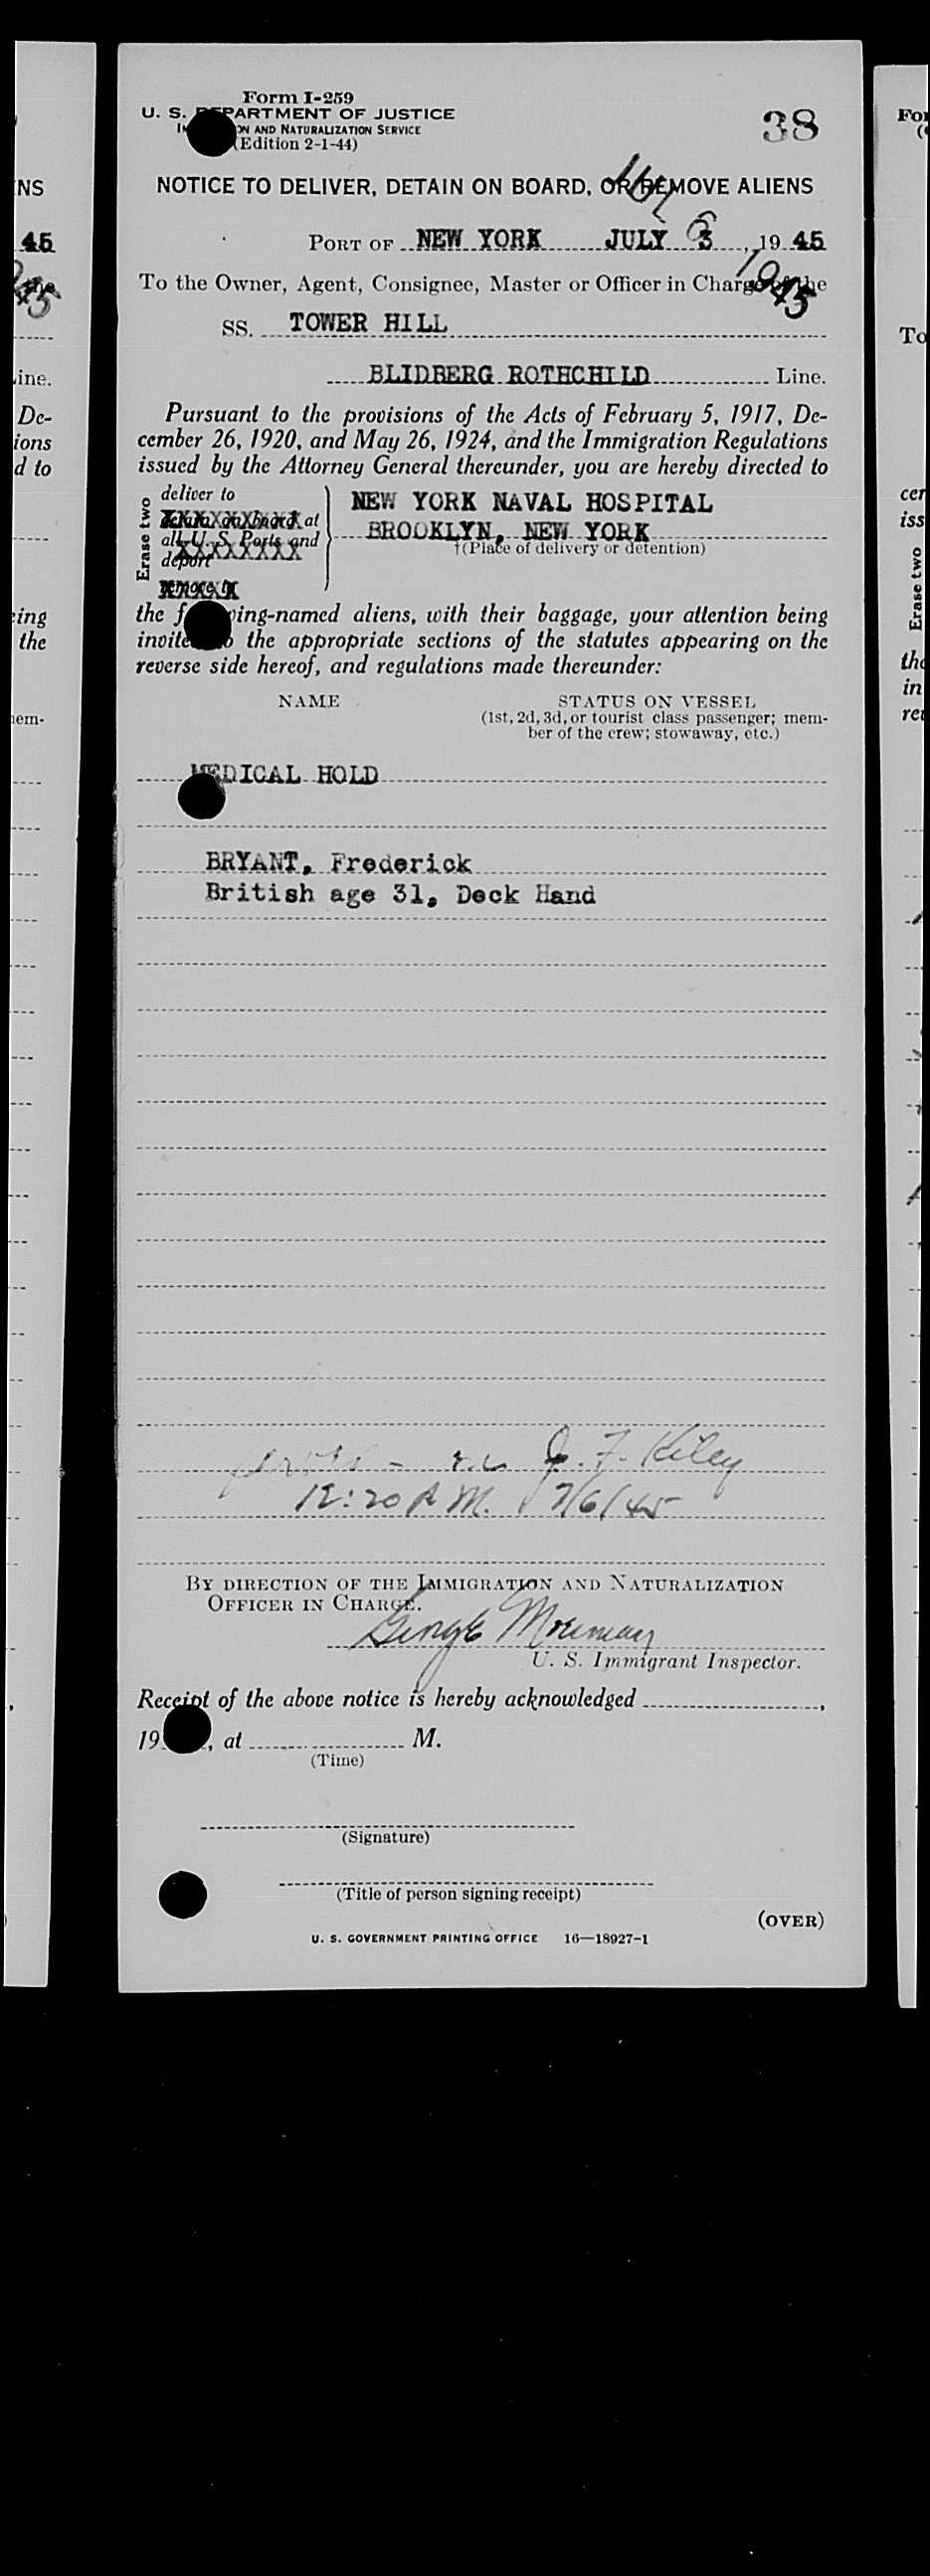 Form I-259
U. S. DEPARTMENT OF JUSTICE
ON AND NATURALIZATION SERVICE
(Edition 2-1-44)
38
NOTICE TO DELIVER, DETAIN ON BOARD, OR REMOVE ALIENS
PORT OF NEW YORK JULY 3, 19 45
6
1945
To the Owner, Agent, Consignee, Master or Officer in Charge of the
SS. TOWER HILL
BLIDBERG ROTHCHILD Line.
Pursuant to the provisions of the Acts of February 5, 1917, De-
cember 26, 1920, and May 26, 1924, and the Immigration Regulations
issued by the Attorney General thereunder, you are hereby directed to
Erase two
deliver to
detain on board at
all U. S. Ports and
deport
remove to
NEW YORK NAVAL HOSPITAL
BROOKLYN, NEW YORK
†(Place of delivery or detention)
the following-named aliens, with their baggage, your attention being
invited to the appropriate sections of the statutes appearing on the
reverse side hereof, and regulations made thereunder:
NAME
STATUS ON VESSEL
(1st, 2d, 3d, or tourist class passenger; mem-
ber of the crew; stowaway, etc.)
MEDICAL HOLD
BRYANT, Frederick
British age 31, Deck Hand
J. F. Kiley
12:20 A M. 7/6/45
BY DIRECTION OF THE IMMIGRATION AND NATURALIZATION
OFFICER IN CHARGE.
George
U. S. Immigrant Inspector.
Receipt of the above notice is hereby acknowledged ,
19 , at M.
(Time)
(Signature)
(Title of person signing receipt)
(OVER)
U. S. GOVERNMENT PRINTING OFFICE 16—18927-1